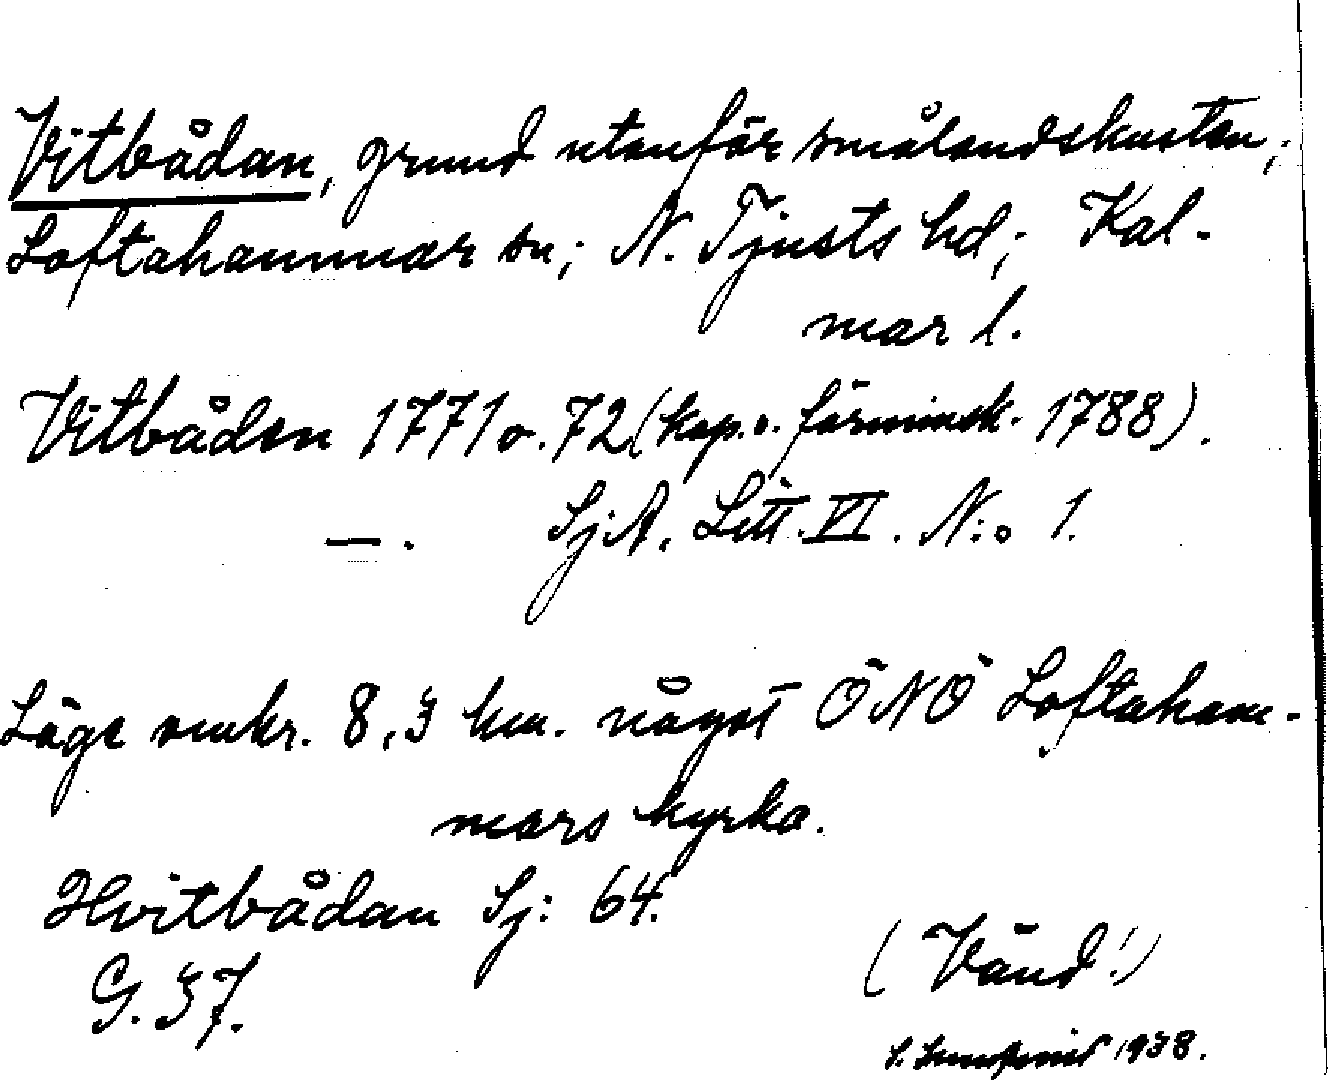 Vitbådan, grund utanför smålandskusten;
Loftahammar sn; N. Tjusts hd; Kal-
mar l.
Vitbåden 1771 o. 72 (kop. o. förminsk. 1788).
—. Sj.A. Litt. VI. N:o 1.
Läge omkr. 8,3 km. något ÖNÖ Loftaham-
mars kyrka.
Hvitbådan Sj: 64.
G. 37.
(Vänd!)
1938.